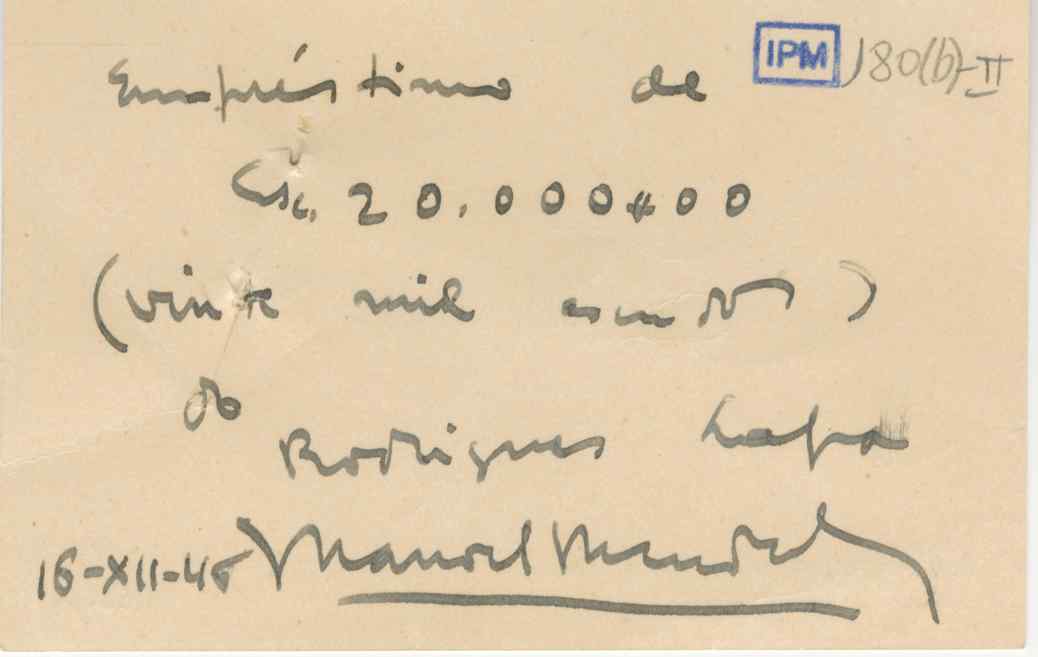 IPM 180(b)-II
Empréstimo de
Esc. 20.000$00
(vinte mil escudos)
do
Rodrigues Lapa
16-XII-46 Manuel Mendes